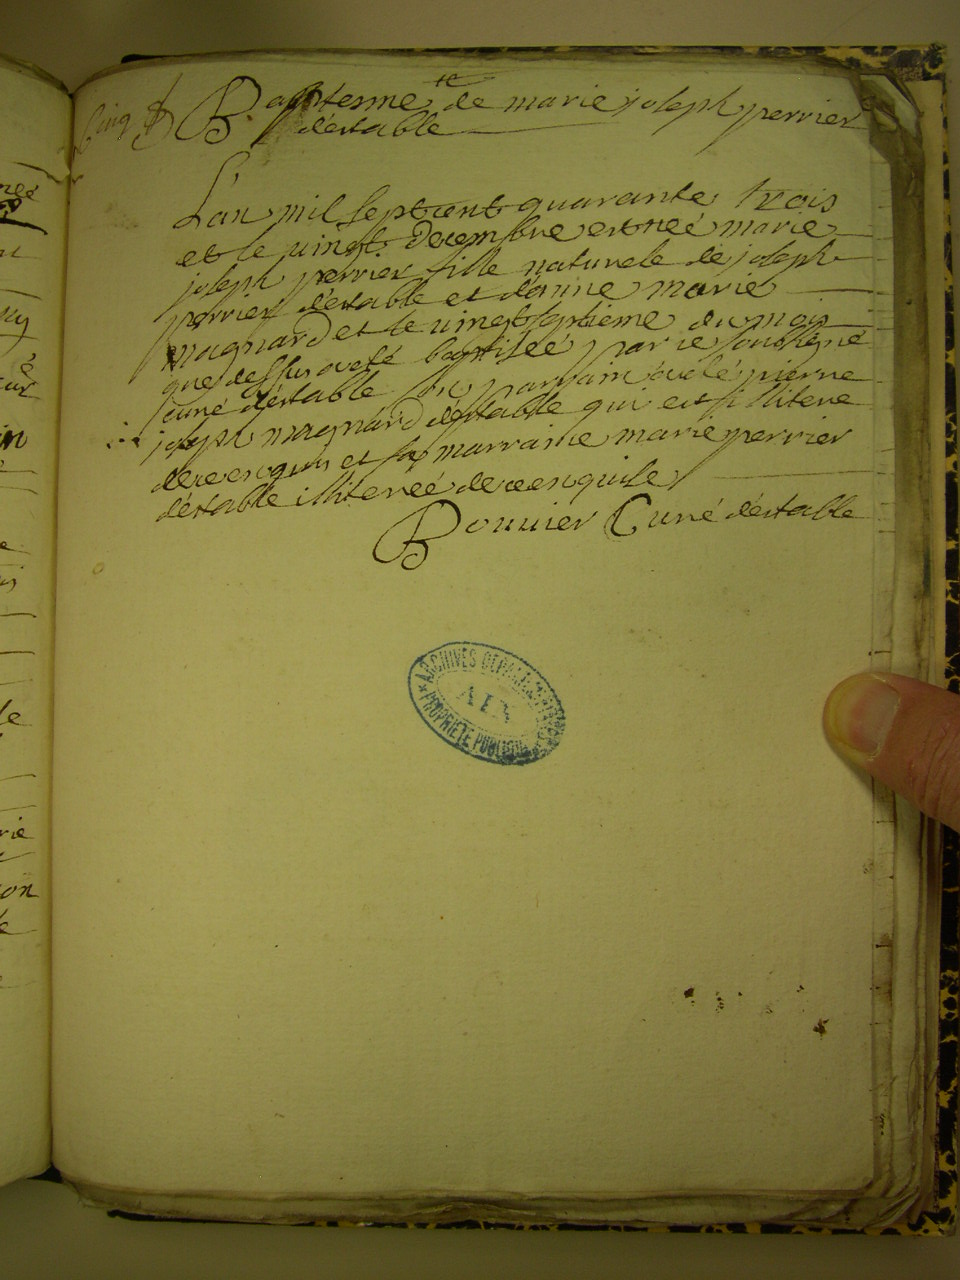 Cinq Baptesme de marie joseph perrier
d'estable
L'an mil sept cent quarante trois
et le vingt decembre est neé marie
joseph perrier fille naturele de joseph
perrier d'estable et d'anne marie
magnard et le vingt septieme du mois
que dessus a eté baptisée par je soubsigné
curé d'estable le parrain a eté pierre
joseph magnard d'estable qui est illiteré
de ce enquis et sa marraine marie perrier
d'estable illitereé de ce enquise
Bouvier Curé d'estable
ARCHIVES DEPARTEMENTALES
AIN
PROPRIETE PUBLIQUE